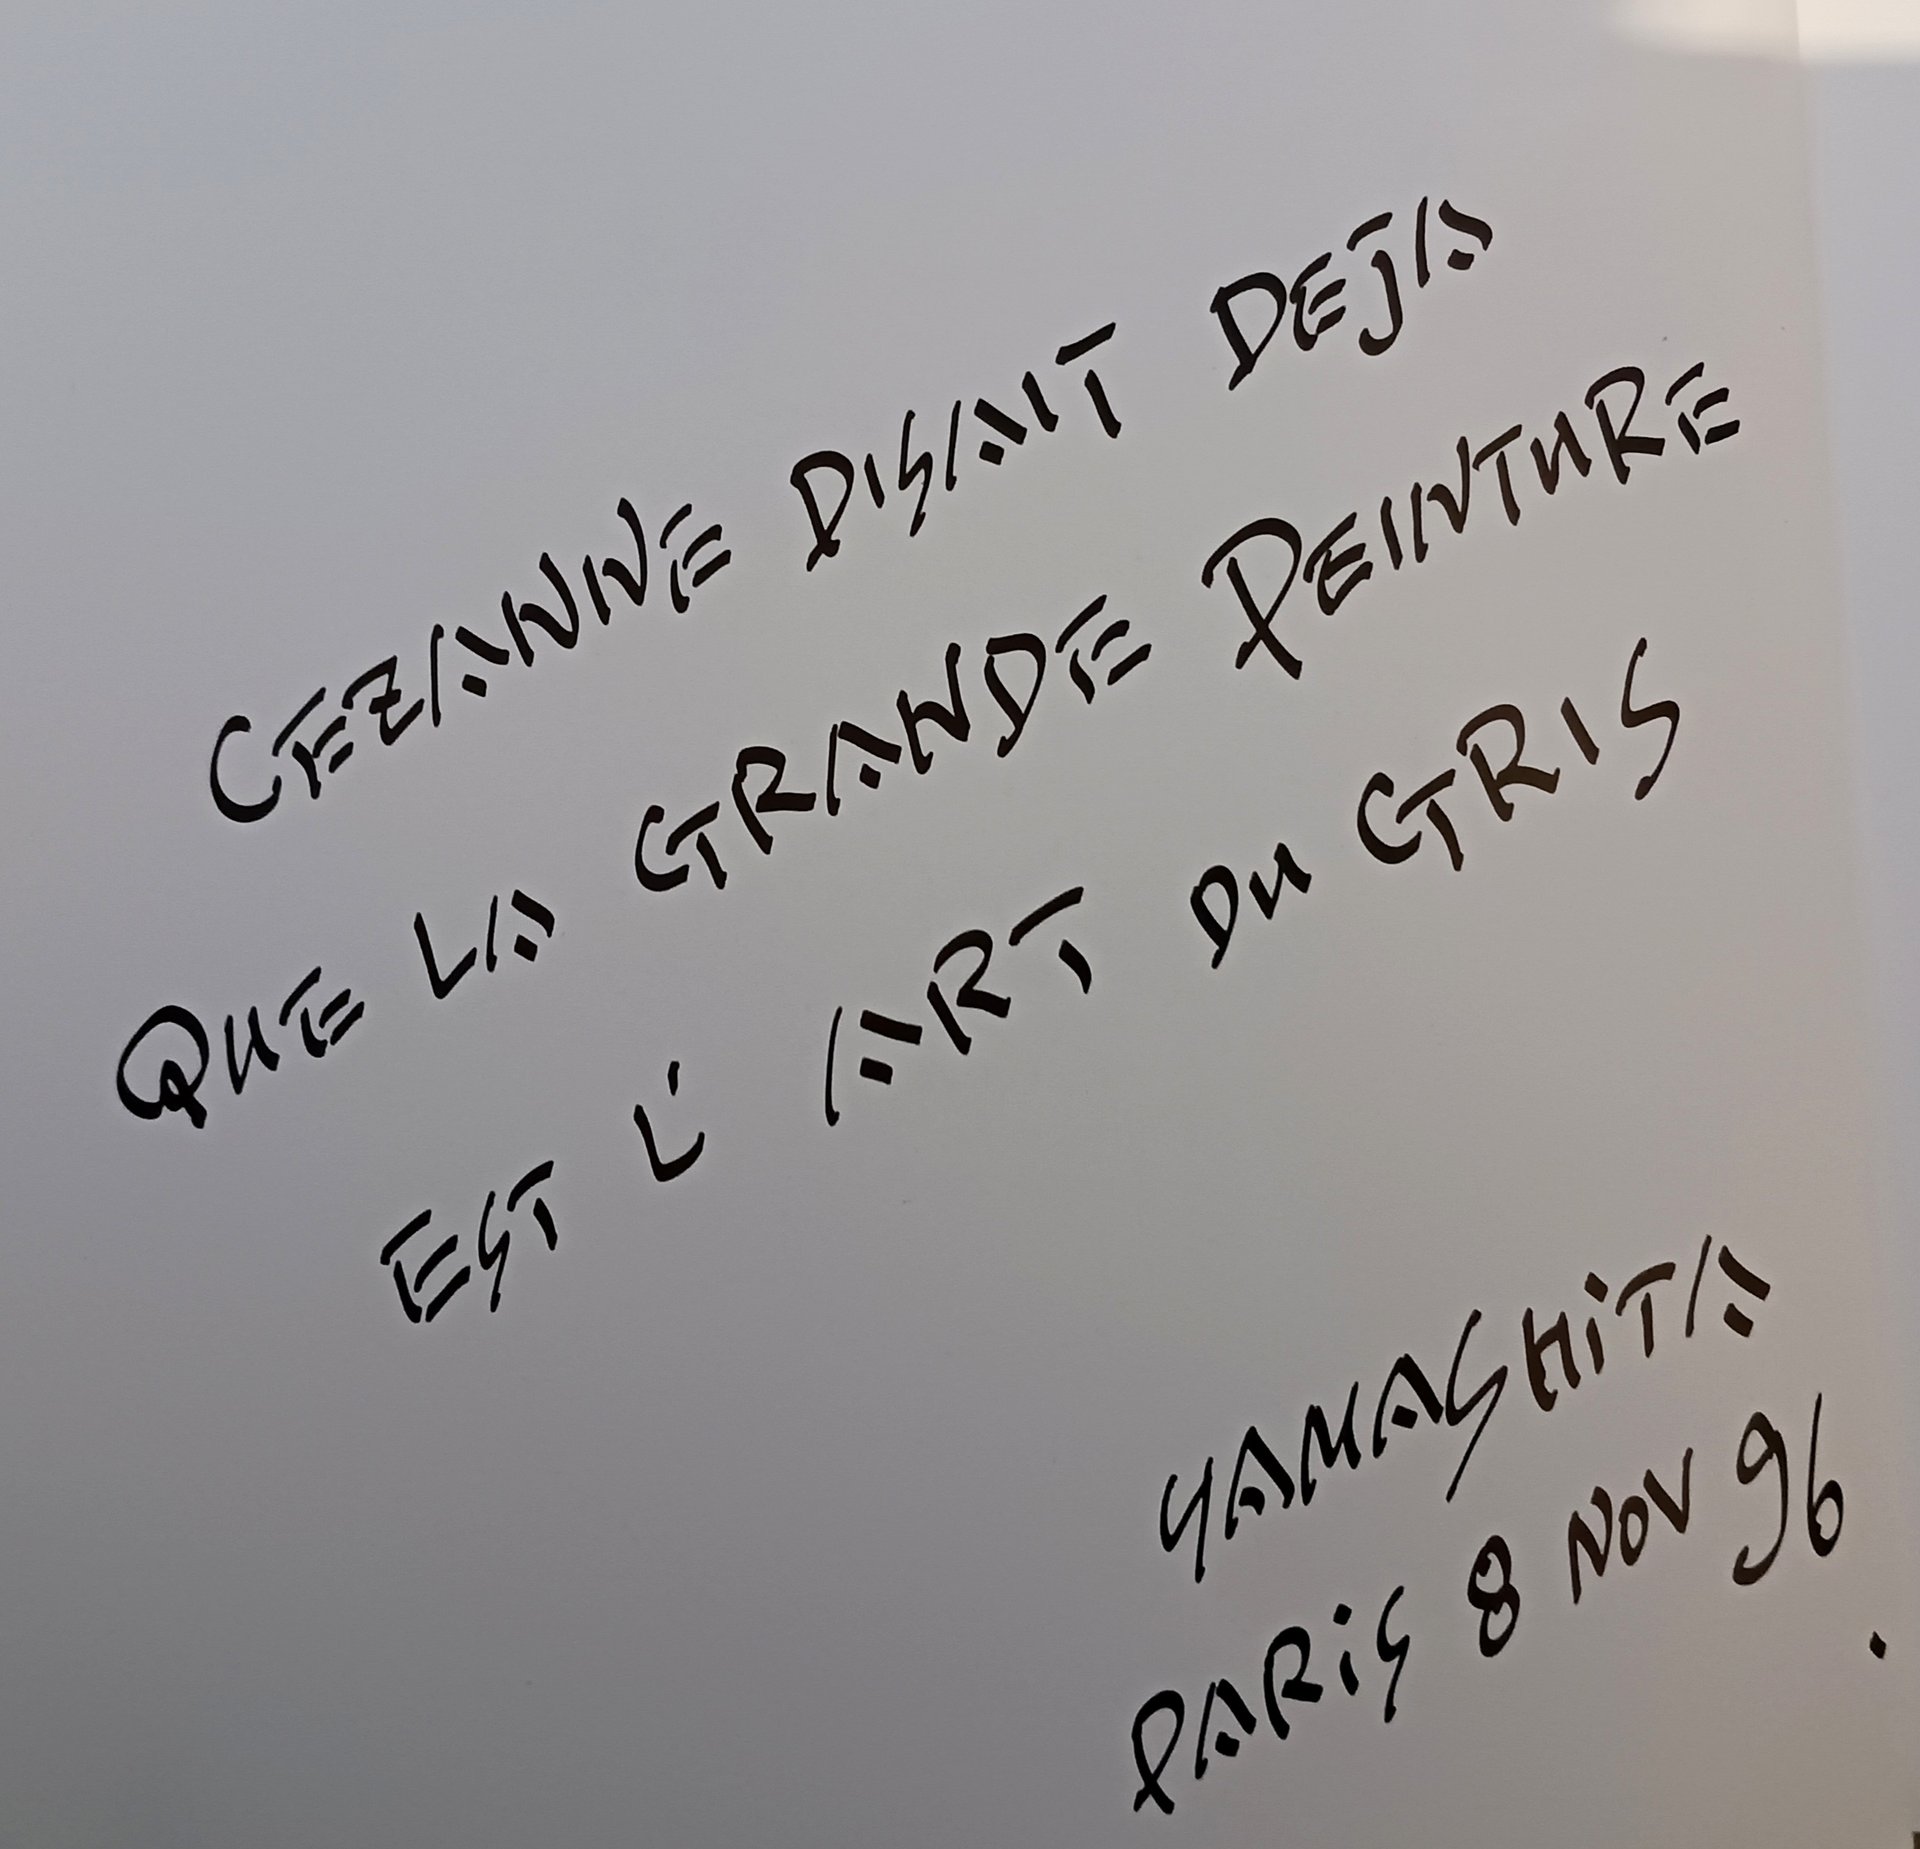 CEZANNE DISAIT DEJA
QUE LA GRANDE PEINTURE
EST L'ART DU GRIS
YAMASHITA
PARIS 8 NOV 96.